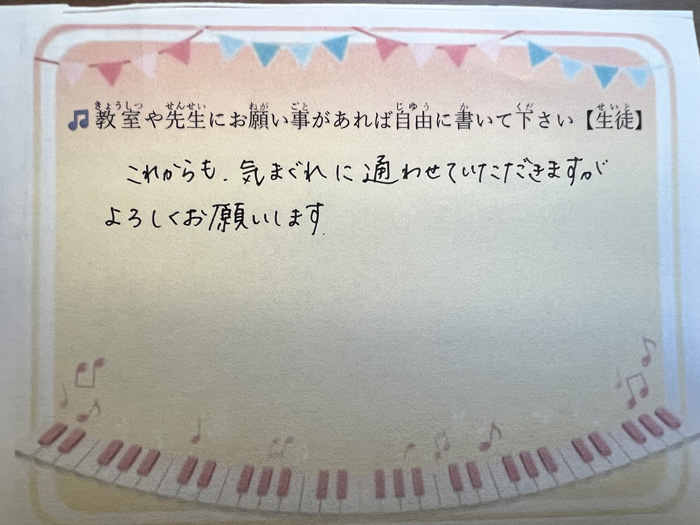 教室や先生にお願い事があれば自由に書いて下さい【生徒】
これからも、気まぐれに通わせていただきますが
よろしくお願いします